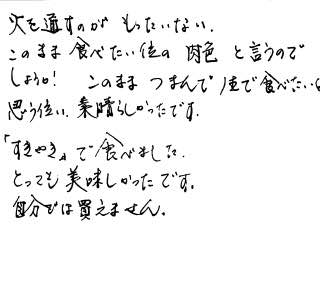 火を通すのが もったいない.
このまま 食べたい位の 肉色 と言うので
しょうか! このまま つまんで 生で食べたいと
思う位い. 素晴らしかったです.
「すきやき」で食べました.
とっても 美味しかったです.
自分では買えません.